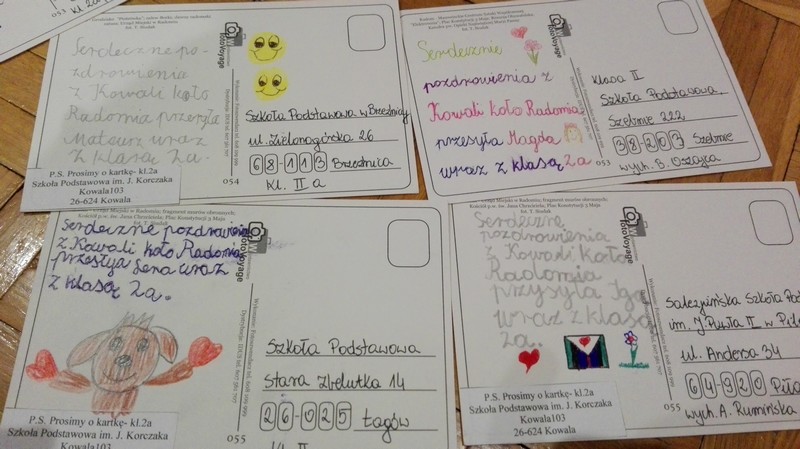 kl. 2a
053
Serdeczne po-
zdrowienia
z Kowali koło
Radomia przesyła
Mateusz wraz
z klasą 2a.
P.S. Prosimy o kartkę- kl.2a
Szkoła Podstawowa im. J. Korczaka
Kowala103
26-624 Kowala
054
fotoVoyage
Szkoła Podstawowa w Brzeźnicy
ul. Zielonogórska 26
68-113 Brzeźnica
kl. II a
Serdeczne
pozdrowienia z
Kowali koło Radomia
przesyła Magda
wraz z klasą 2a
053
fotoVoyage
Klasa II
Szkoła Podstawowa
Szebnie 222
38-203 Szebnie
wych. B. Oszajca
Serdeczne pozdrowienia
z Kowali koło Radomia
przesyła Lena wraz
z klasą 2a.
P.S. Prosimy o kartkę- kl.2a
Szkoła Podstawowa im. J. Korczaka
Kowala103
055
fotoVoyage
Szkoła Podstawowa
Stara Zbelutka 14
26-025 Łagów
kl. II
Serdeczne
pozdrowienia
z Kowali koło
Radomia
przysyła Iga
wraz z klasą
2a.
P.S. Prosimy o kartkę- kl.2a
Szkoła Podstawowa im. J. Korczaka
Kowala103
26-624 Kowala
055
fotoVoyage
Salezjańska Szkoła Pod
im. J. Pawła II w Pile
ul. Andersa 34
64-920 Piła
wych. A. Rumińska